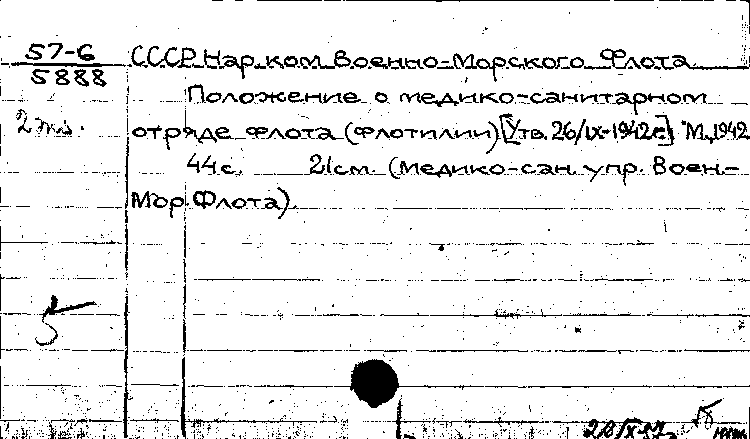 57-6 СССР. Нар. ком. Военно-Морского Флота
5888
Положение о медико-санитарном
2 экз. отряде флота (флотилии) [Утв. 26/IX-1942г.] М., 1942
44с. 21см. (Медико-сан. упр. Воен.-
Мор. Флота).